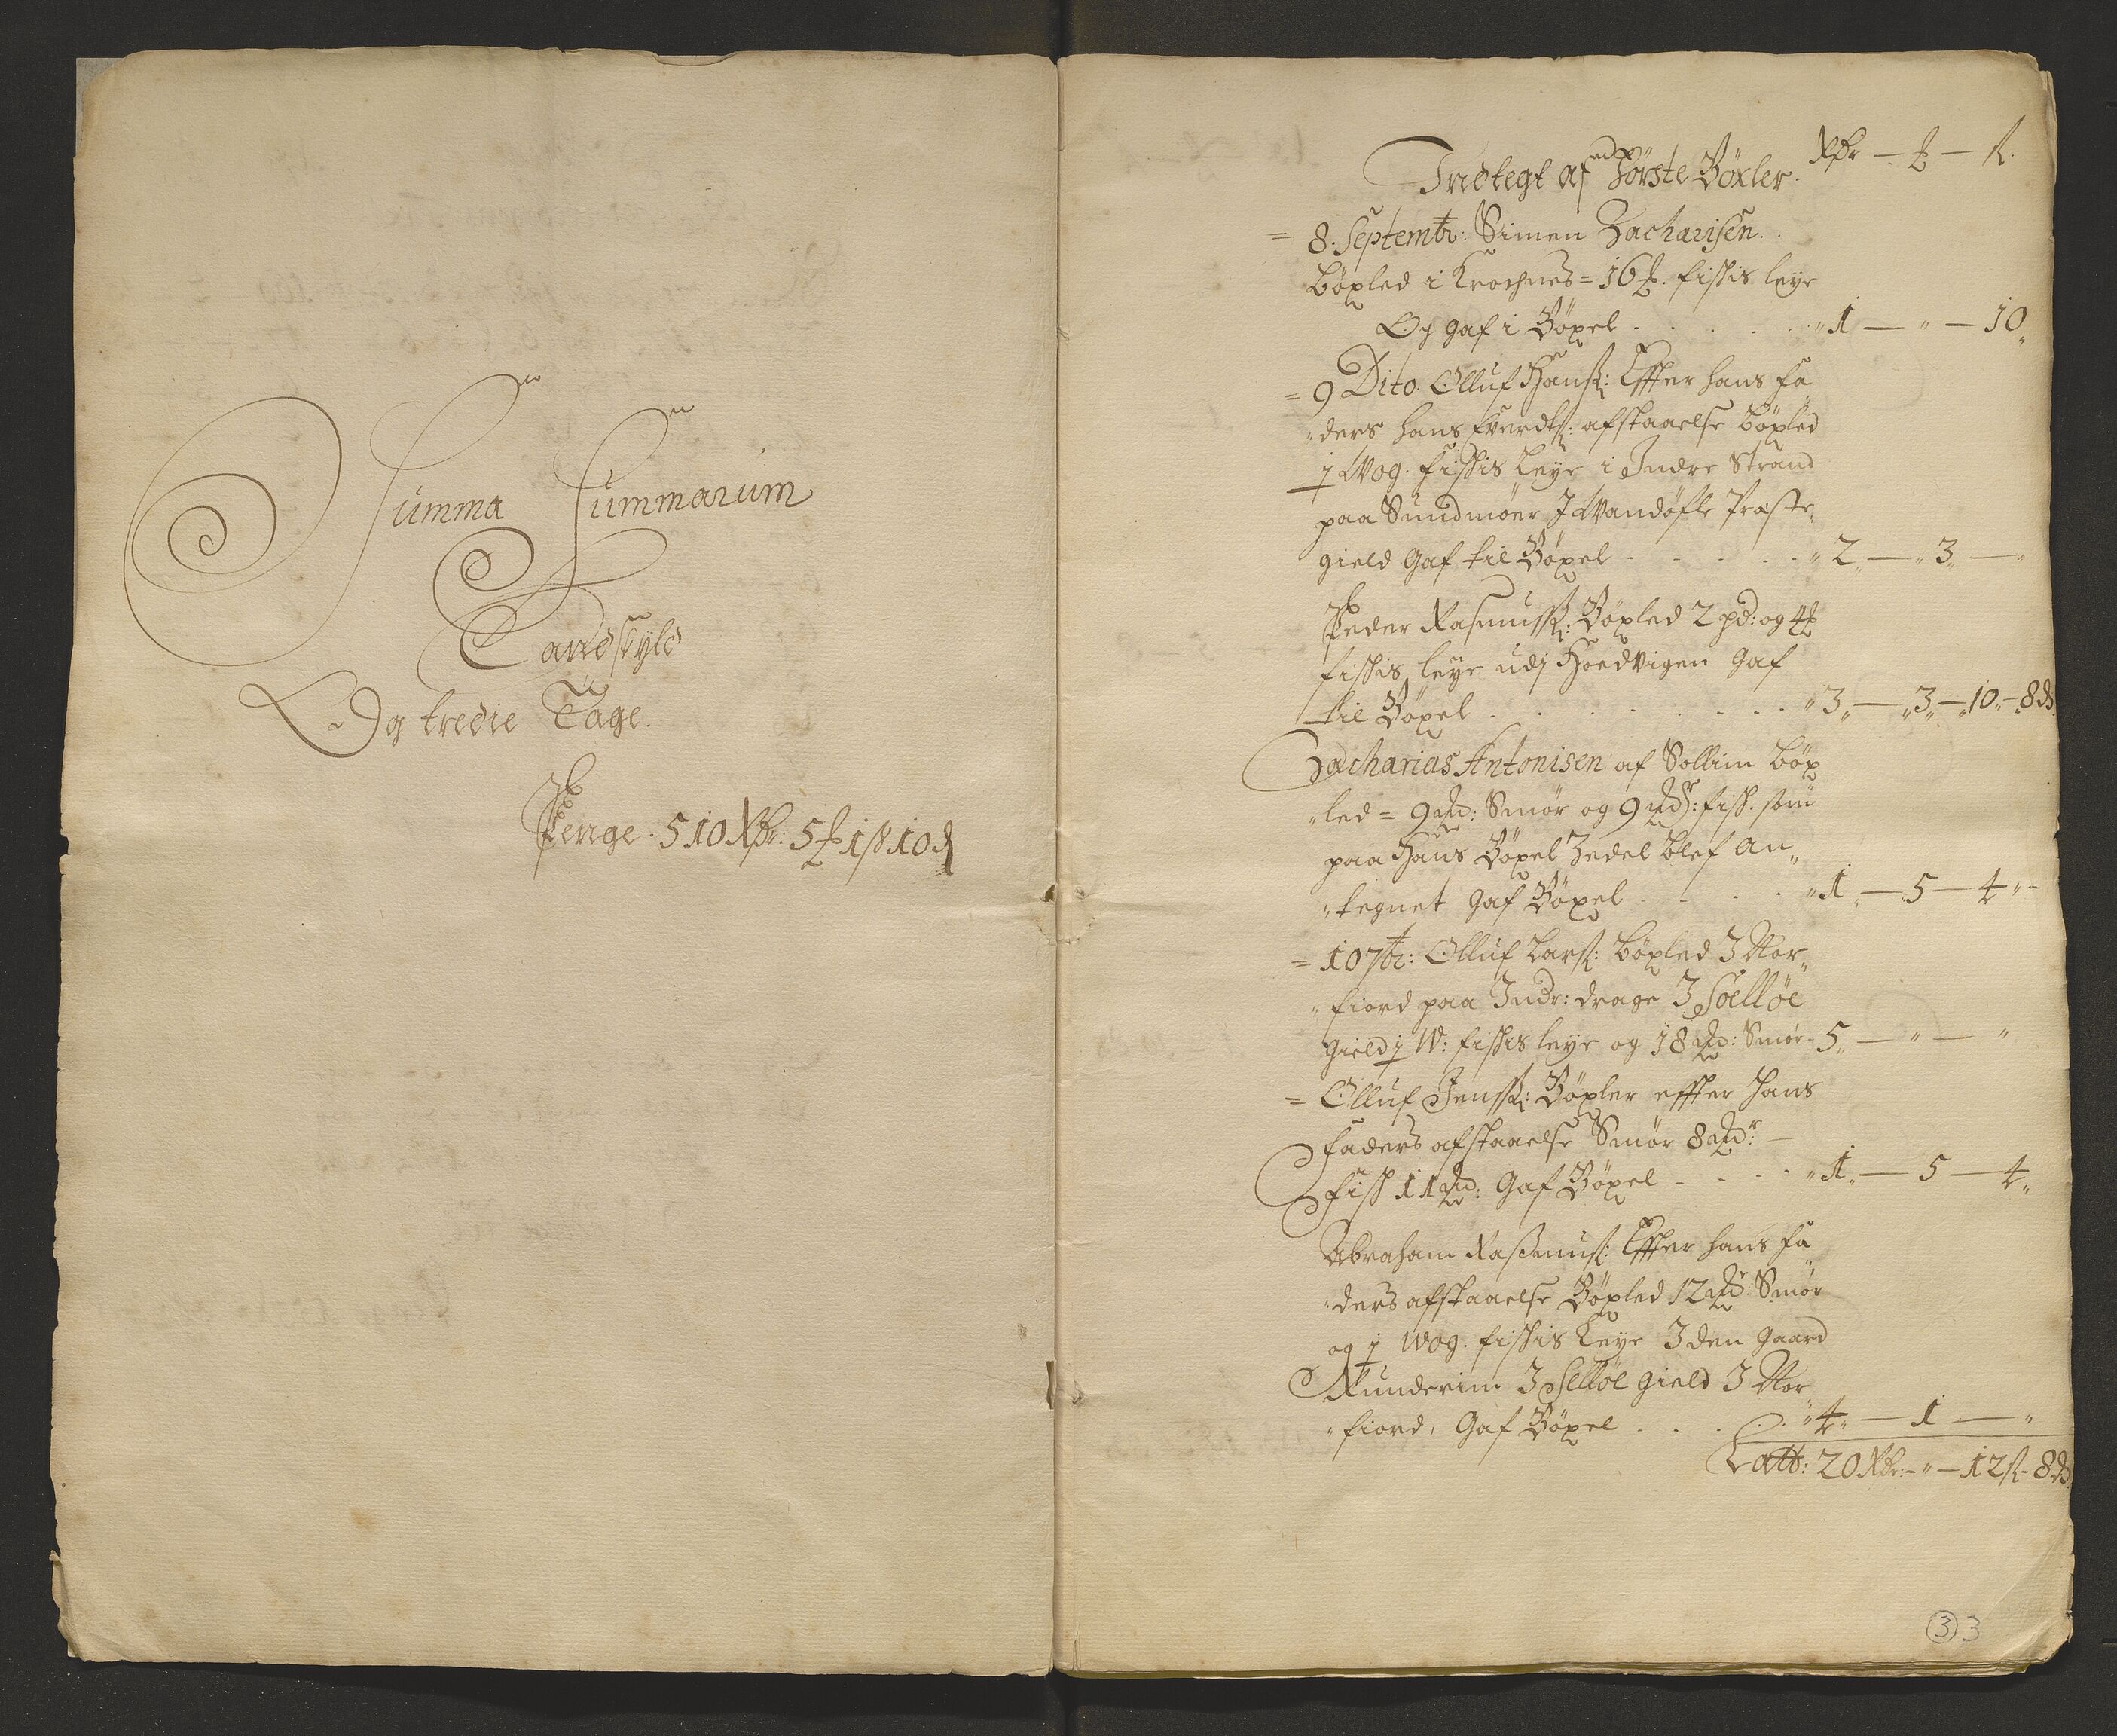 Summa Summarum
Landskyld
Og tredie Tage.
Penge. 510 Rdr: 5 ℔ 1 ß 10 d
Indtegt af Förste Böxler. Rdr — ℔ — ß.
= 8. Septembr: Simen Zacharisen.
böxled i Krochnes = 16 ℔. fisches leye
Og gaf i Böxel . . . . . " 1 — " — 10 "
= 9 Dito. Olluf Hanß: Effter hans fa
"ders hans Everdtß: afstaaelse böxled
j Wog. fisches Leye i Indre Strand
paa Sundmöer J Wandöfle Præste
gield Gaf til Böxel - - - - - " 2 " — " 3 " — "
Peder Rasmusß: Böxled 2 pd: og 4 ℔
fisches leye udj Hoedvigen Gaf
til Böxel . . . . . . . . " 3 " — " 3 " — " 10 " — 8 d
Zacharias Antonisen af Sollim böx
"led = 9 md: Smör og 9 mdr: fisch. som
paa Hans Böxel Zedel blef an"
"tegnet Gaf Böxel . . . . " 1 " — " 5 — 4 " —
= 10 7br: Olluf Larß: böxled J Nor"
"fiord paa Indr: drage J Soelløe
Gield j W: fisches leye og 18 md: Smör - 5 " — " — "
= Olluf Jenß: Böxler effter hans
Faders afstaaelse Smör 8 mdr: —
Fisch 11 md: Gaf Böxel - - - - " 1 " — 5 — 4 "
Abraham Rasmusß: Effter hans fa
"ders afstaaelse Böxled 12 mdr: Smör
og j Wog. fisches Leye J den Gaard
Runderim J Selløe gield J Nor
"fiord, Gaf Böxel . . . . " 4 " — 1 — "
Latt: 20 Rdr: - " — 12 ß - 8 d
3 3